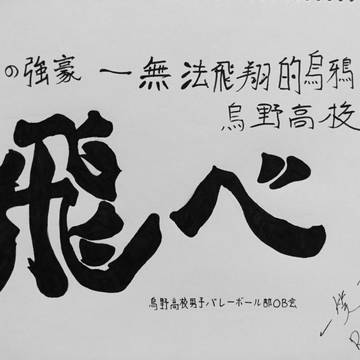 の強豪 一無法飛翔的烏鴉
烏野高校
飛べ
烏野高校男子バレーボール部OB会